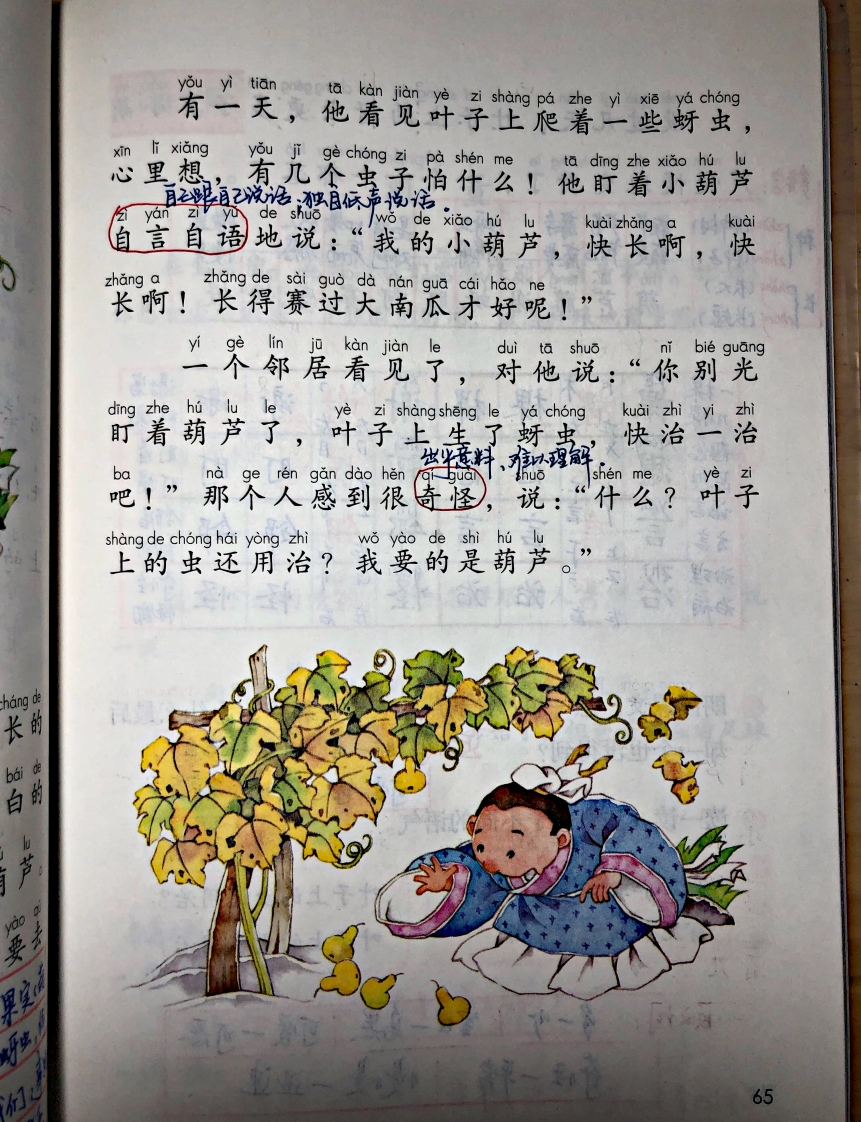 yǒu yì tiān tā kàn jiàn yè zi shàng pá zhe yì xiē yá chóng
有一天，他看见叶子上爬着一些蚜虫，
xīn lǐ xiǎng yǒu jǐ gè chóng zi pà shén me tā dīng zhe xiǎo hú lu
心里想，有几个虫子怕什么！他盯着小葫芦
自己跟自己说话，独自低声说话。
zì yán zì yǔ de shuō wǒ de xiǎo hú lu kuài zhǎng a kuài
自言自语地说：“我的小葫芦，快长啊，快
zhǎng a zhǎng de sài guò dà nán guā cái hǎo ne
长啊！长得赛过大南瓜才好呢！”
yí gè lín jū kàn jiàn le duì tā shuō nǐ bié guāng
一个邻居看见了，对他说：“你别光
dīng zhe hú lu le yè zi shàng shēng le yá chóng kuài zhì yi zhì
盯着葫芦了，叶子上生了蚜虫，快治一治
出乎意料，难以理解。
ba nà ge rén gǎn dào hěn qí guài shuō shén me yè zi
吧！”那个人感到很奇怪，说：“什么？叶子
shàng de chóng hái yòng zhì wǒ yào de shì hú lu
上的虫还用治？我要的是葫芦。”
cháng de
长的
bái de
白的
lu
芦。
yào qù
要去
果实
蚜虫，
们
65